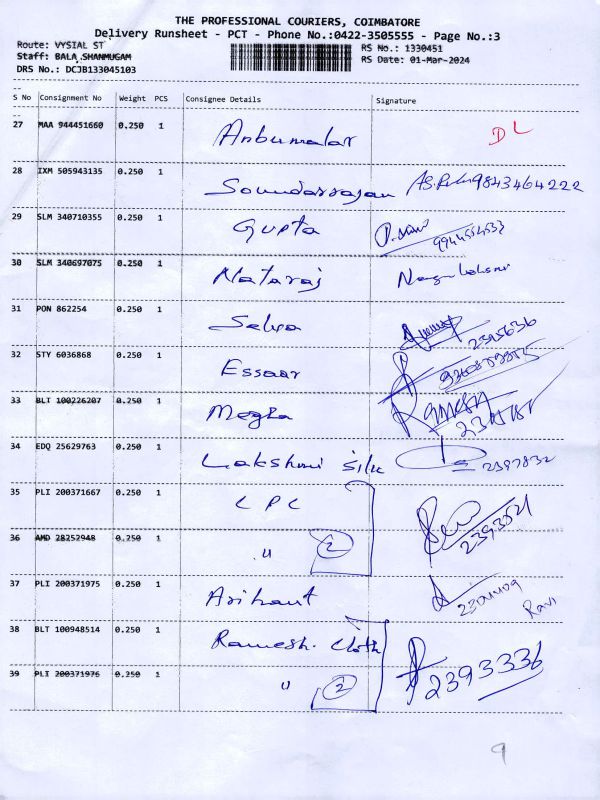 THE PROFESSIONAL COURIERS, COIMBATORE
Delivery Runsheet - PCT - Phone No.:0422-3505555 - Page No.:3
Route: VYSIAL ST RS No.: 1330451
Staff: BALA SHANMUGAM RS Date: 01-Mar-2024
DRS No.: DCJB133045103
S No Consignment No Weight PCS Consignee Details Signature
27 MAA 944451660 0.250 1 Anbumalar DL
28 IXM 505943135 0.250 1 Soundarrajan 9843464222
29 SLM 340710355 0.250 1 Gupta
30 SLM 340697075 0.250 1 Nataraj
31 PON 862254 0.250 1 Selva 2395636
32 STY 6036868 0.250 1 Essaar
33 BLT 100226207 0.250 1 Megha
34 EDQ 25629763 0.250 1 Lakshmi Silk 2397832
35 PLI 200371667 0.250 1 LPC
36 AMD 28252948 0.250 1 " 2 2393521
37 PLI 200371975 0.250 1 Arihant Ravi
38 BLT 100948514 0.250 1 Ramesh. Cloth
39 PLI 200371976 0.250 1 " 2 2393336
9